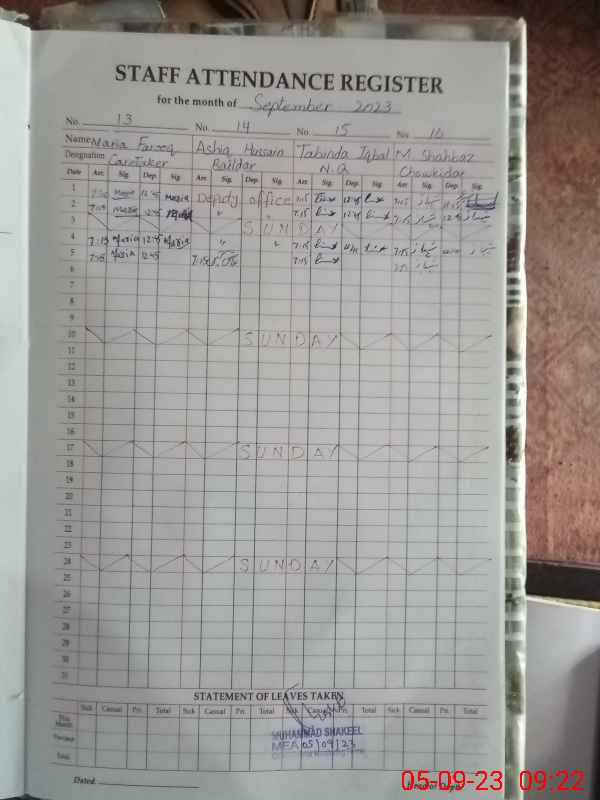 STAFF ATTENDANCE REGISTER
for the month of September 2023
No. 13 No. 14 No. 15 No. 16
Name Maria Farooq Ashiq Hussain Tabinda Iqbal M Shahbaz
Designation CareTaker Baildar N.Q Chowkidar
Date Arr. Sig. Dep. Sig. Arr. Sig. Dep. Sig. Arr. Sig. Dep. Sig. Arr. Sig. Dep. Sig.
1 Maria 12:45 Maria Deputy office 7:15 12:45
2 7:15 Maria 12:45 " " 7:15 12:45 7:15 12:45
3 SUNDAY
4 7:15 Maria 12:45 Maria " " 7:15 7:15
5 7:15 Maria 12:45 7:15 7:15
6
7
8
9
10 SUNDAY
11
12
13
14
15
16
17 SUNDAY
18
19
20
21
22
23
24 SUNDAY
25
26
27
28
29
30
31
STATEMENT OF LEAVES TAKEN
Sick Casual Pri. Total Sick Casual Pri. Total Sick Casual Pri. Total Sick Casual Pri. Total
This Month
Previous
Total
MUHAMMAD SHAKEEL
MEA 05/09/23
Dated
05-09-23 09:22